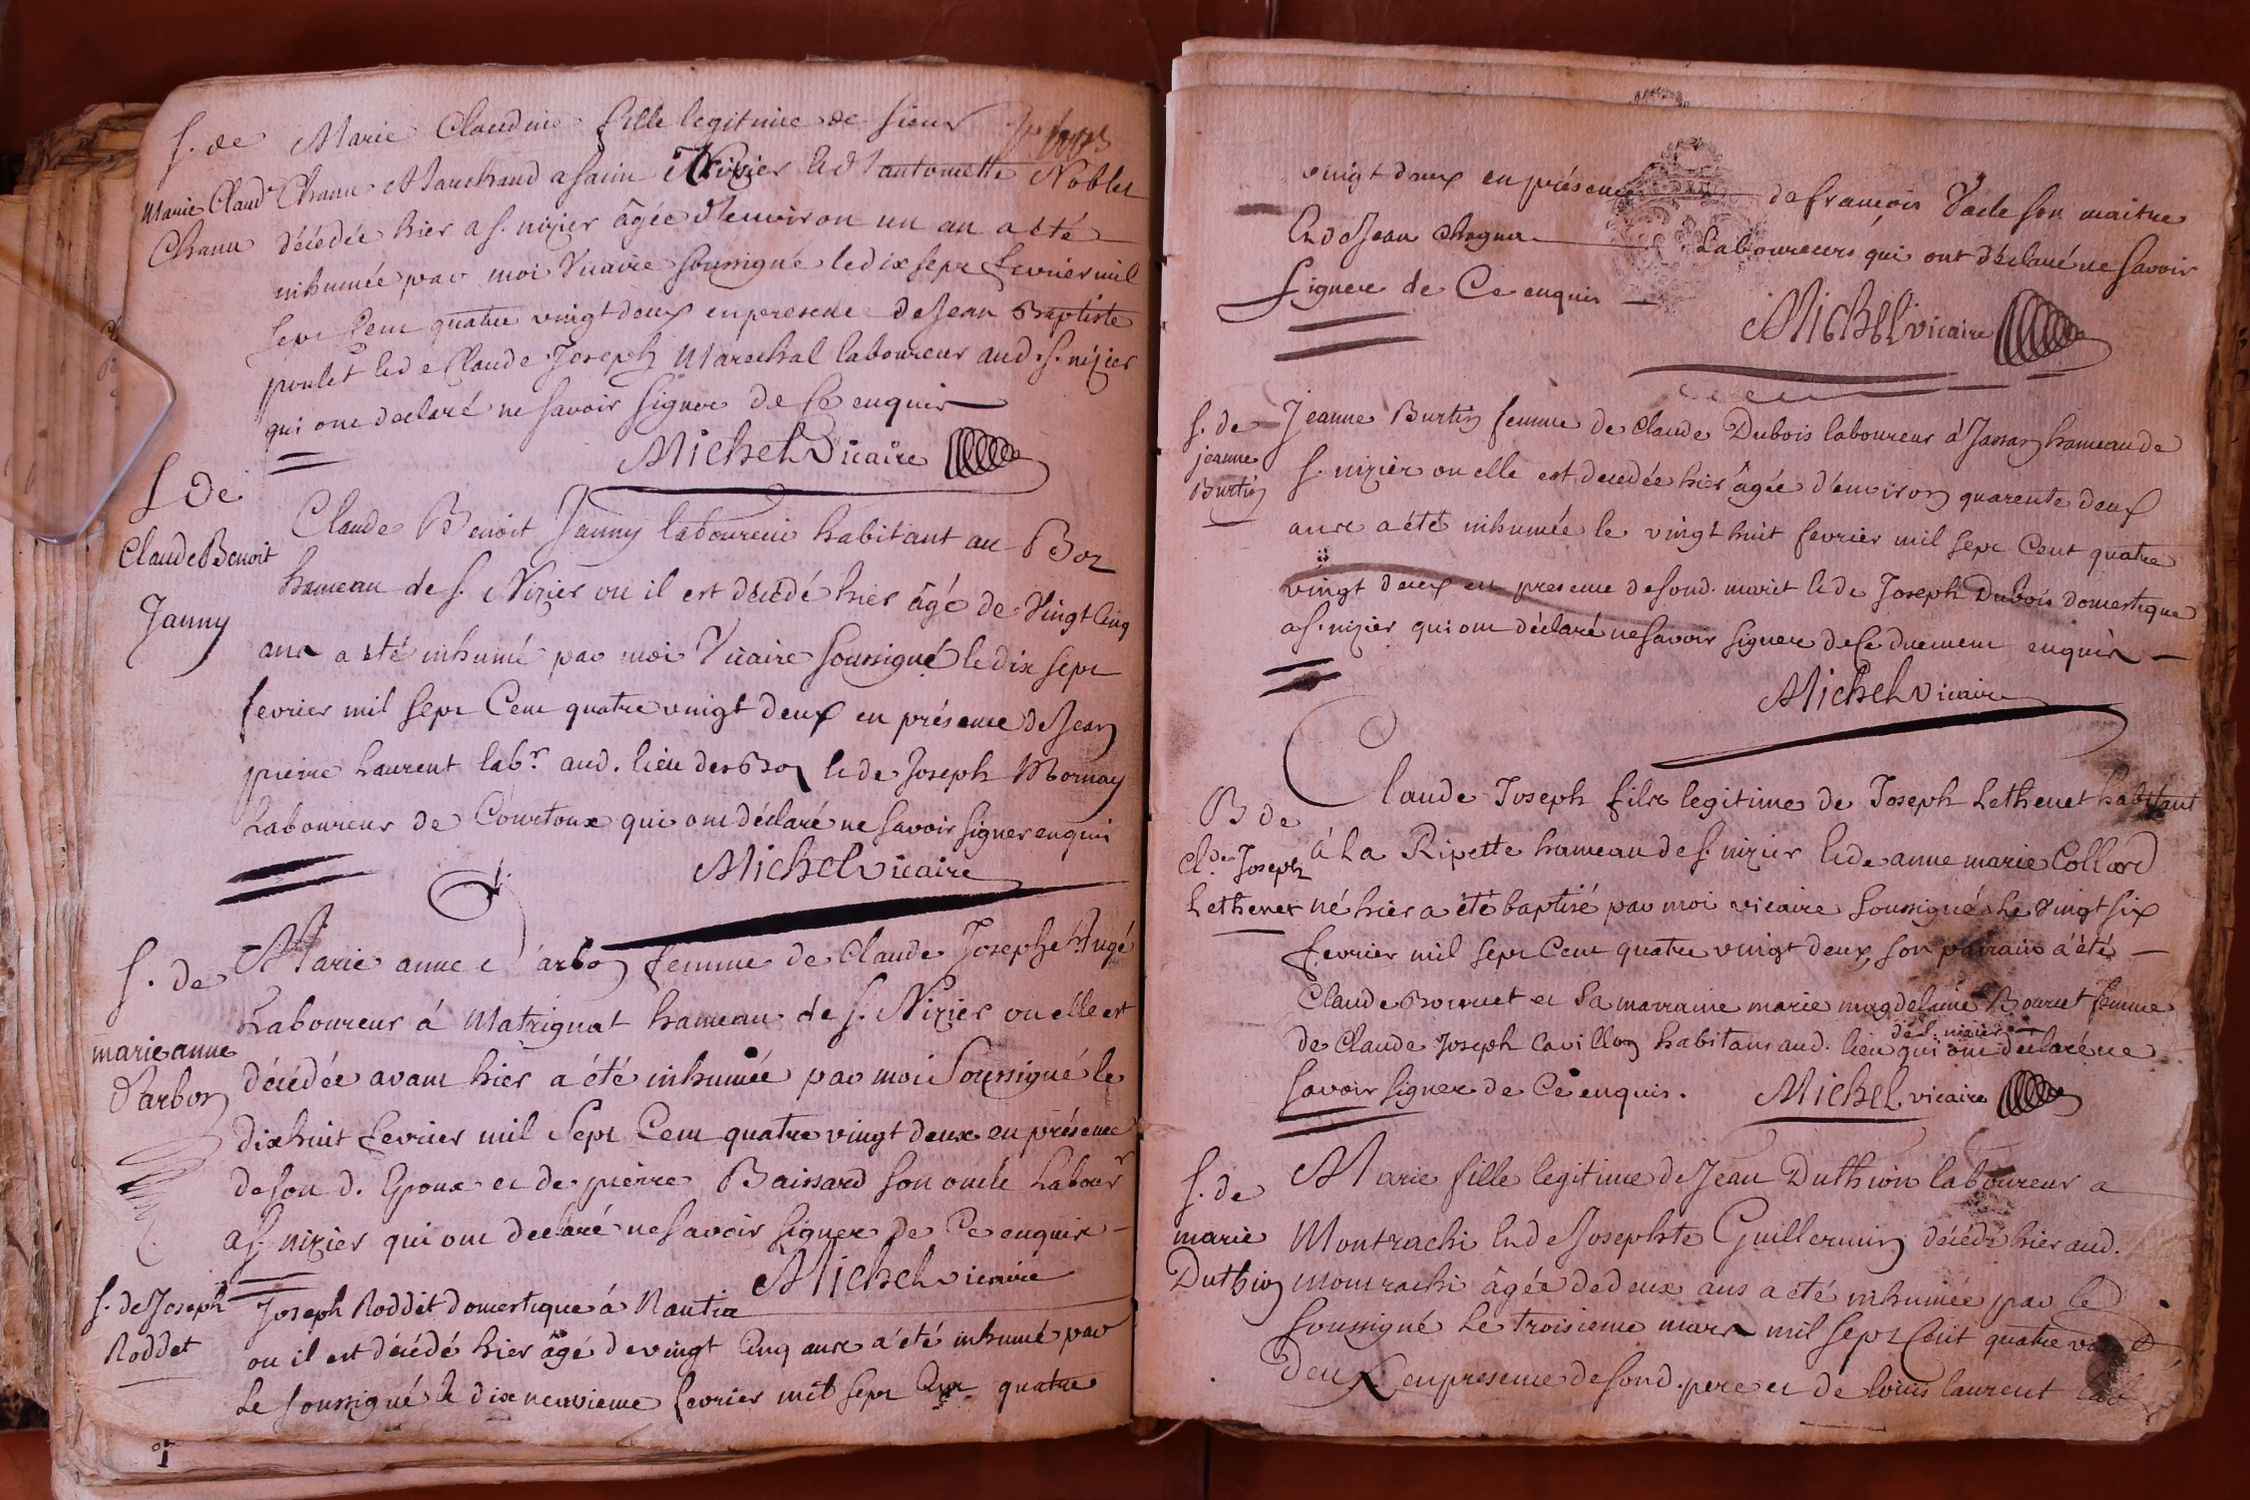 S. de
Marie Claud.
Chanu
Marie Claudine fille legitime de sieur
Chanu Marchand a Saint Nizier et d'antoinette Noblet
décédée hier a S. nizier âgée d'environ un an a eté
inhumée par moi Vicaire soussigné le dix sept fevrier mil
sept Cent quatre vingt deux en presence de Jean Baptiste
poulet et de Claude Joseph Marechal laboureur aud. S. nizier
qui ont declaré ne savoir signer de Ce enquis
Michel Vicaire
S. De
Claude Benoit
Janny
Claude Benoit Janny laboureur habitant au Boz
hameau de S. Nizier ou il est décédé hier âgé de Vingt Cinq
ans a été inhumé par moi Vicaire soussigné le dix sept
fevrier mil sept Cent quatre vingt deux en présence de Jean
pierre Laurent labr. aud. lieu des Boz et de Joseph Mornay
Laboureur de Courtoux qui ont déclaré ne savoir signer enquis
Michel vicaire
S. de
marie anne
Darbon
Marie anne darbon femme de Claude Joseph Augé
Laboureur á Matrignat hameau de S. Nizier ou elle est
décédée avant hier a été inhumée par moi Soussigné le
dixhuit fevrier mil Sept Cent quatre vingt deux en présence
de son d. Epoux et de pierre Baissard son oncle Labour
a S. nizier qui ont declaré ne savoir signer de Ce enquis
Michel vicaire
S. de Joseph
Roddet
Joseph Roddet domestique á Nantia
ou il est décédé hier âgé de vingt Cinq ans a été inhumé par
Le soussigné le dix neuvieme fevrier mil sept Cent quatre
vingt deux en présence de françois Vade son maitre
Et de Jean Chagna Laboureurs qui ont déclaré ne savoir
signer de Ce enquis
Michel vicaire
S. de
jeanne
Burtin
Jeanne Burtin femme de Claude Dubois laboureur á Jassan hameau de
S. nizier ou elle est decedée hier âgée d'environ quarente deux
ans a été inhumée le vingt huit fevrier mil sept Cent quatre
vingt deux en presence de son d. marit et de Joseph Dubois domestique
a S. nizier qui ont déclaré ne savoir signer de Ce duement enquis
Michel vicaire
B de
Cl.de Joseph
Lethenet
Claude Joseph fils legitime de Joseph Lethenet habitant
á La Ripette hameau de S. nizier et de anne marie Collard
né hier a été baptisé par moi vicaire soussigné Le Vingt six
fevrier mil sept Cent quatre vingt deux, son parrain a été
Claude Bourcet et Sa marraine marie magdelaine Bourcet femme
de S. nizier
de Claude Joseph Cavillon habitans aud. lieu qui ont declaré ne
savoir signer de Ce enquis.
Michel vicaire
S. de
marie
Duthion
Marie fille legitime de Jean Duthion laboureur a
Montrachi et de Josephte Guillermin décédé hier aud.
montrachi âgée de deux ans a été inhumée par le
soussigné Le troisieme mars mil sept Cent quatre vingt
Deux en presence de son d. pere et de louis laurent